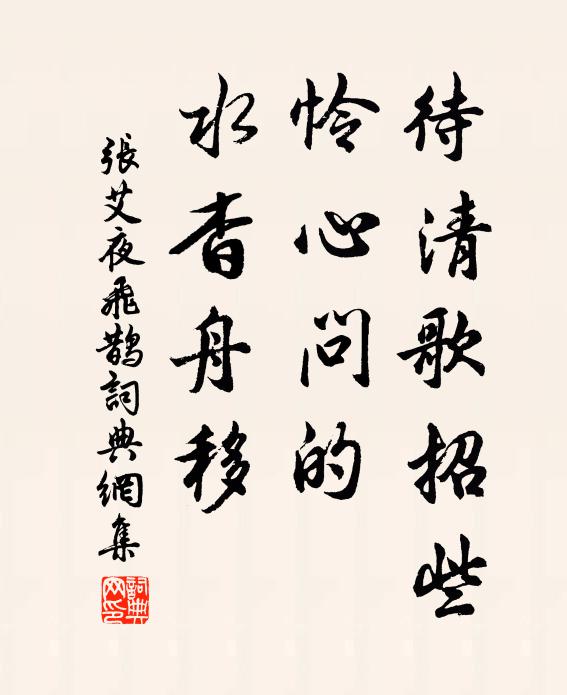 待清歌招些
怜心问的
水香舟移
張艾夜飛鵲詞典網集
詞典网印